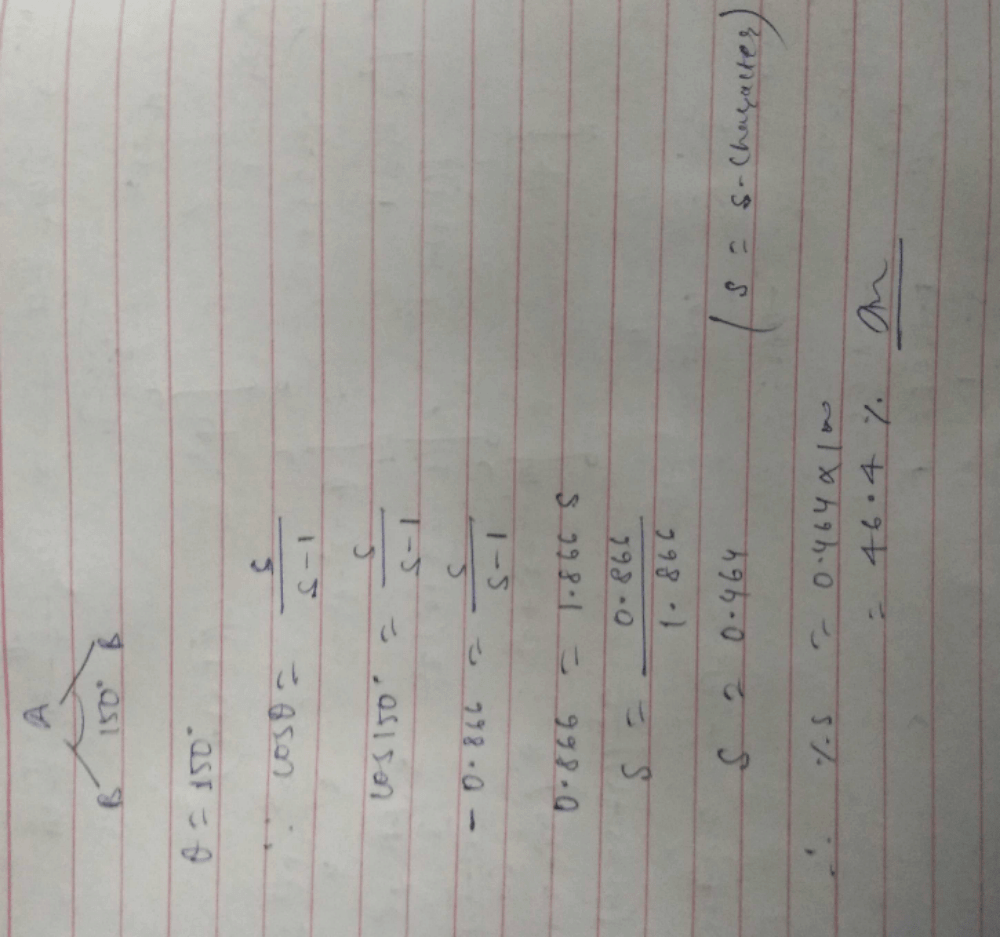 A
B 150° B
θ = 150°
∴ cosθ = s/s-1
cos150° = s/s-1
-0.866 = s/s-1
0.866 = 1.866 s
s = 0.866/1.866
s = 0.464 (s = s-character)
∴ %s = 0.464 x 100
= 46.4 %. Ans